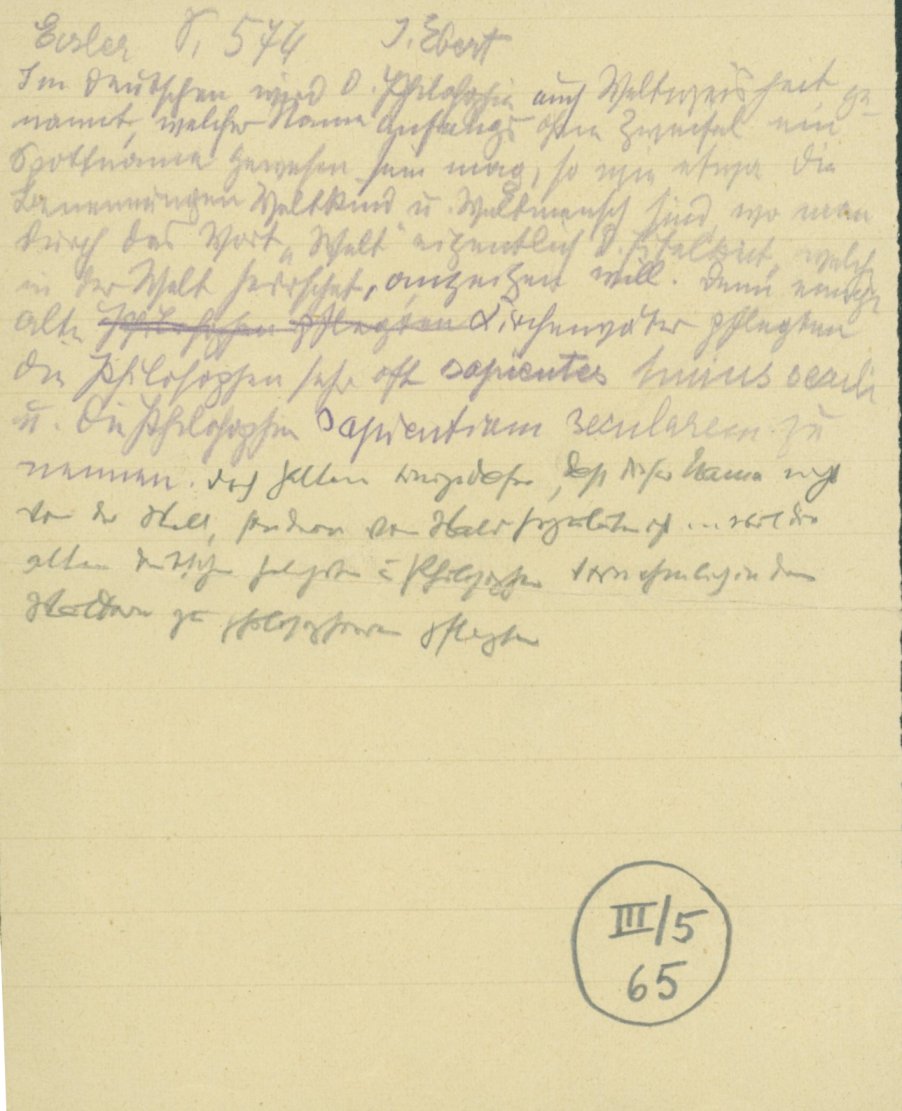 Eisler S. 574 J. Ebert
Im Deutschen wird d. Philosophie auch Weltweisheit ge-
nannt, welcher Name anfangs ohne Zweifel ein
Spottname gewesen sein mag, so wie etwa die
Benennungen Weltkind u. Weltmensch sind, wo man
durch das Wort „Welt" eigentlich d. Eitelkeit, welche
in der Welt herrschet, anzeigen will. Denn einige
alte Philosophen pflegten Kirchenväter pflegten
die Philosophen sehr oft sapientes huius seculi
u. die Philosophie sapientiam secularem zu
nennen. doch halten dafür, daß dieser Name nicht
von der Welt, sondern vom Wald ... weil die
alten deutschen u Philosophen vornehmlich in den
Wäldern zu philosophieren pflegten
III/5
65